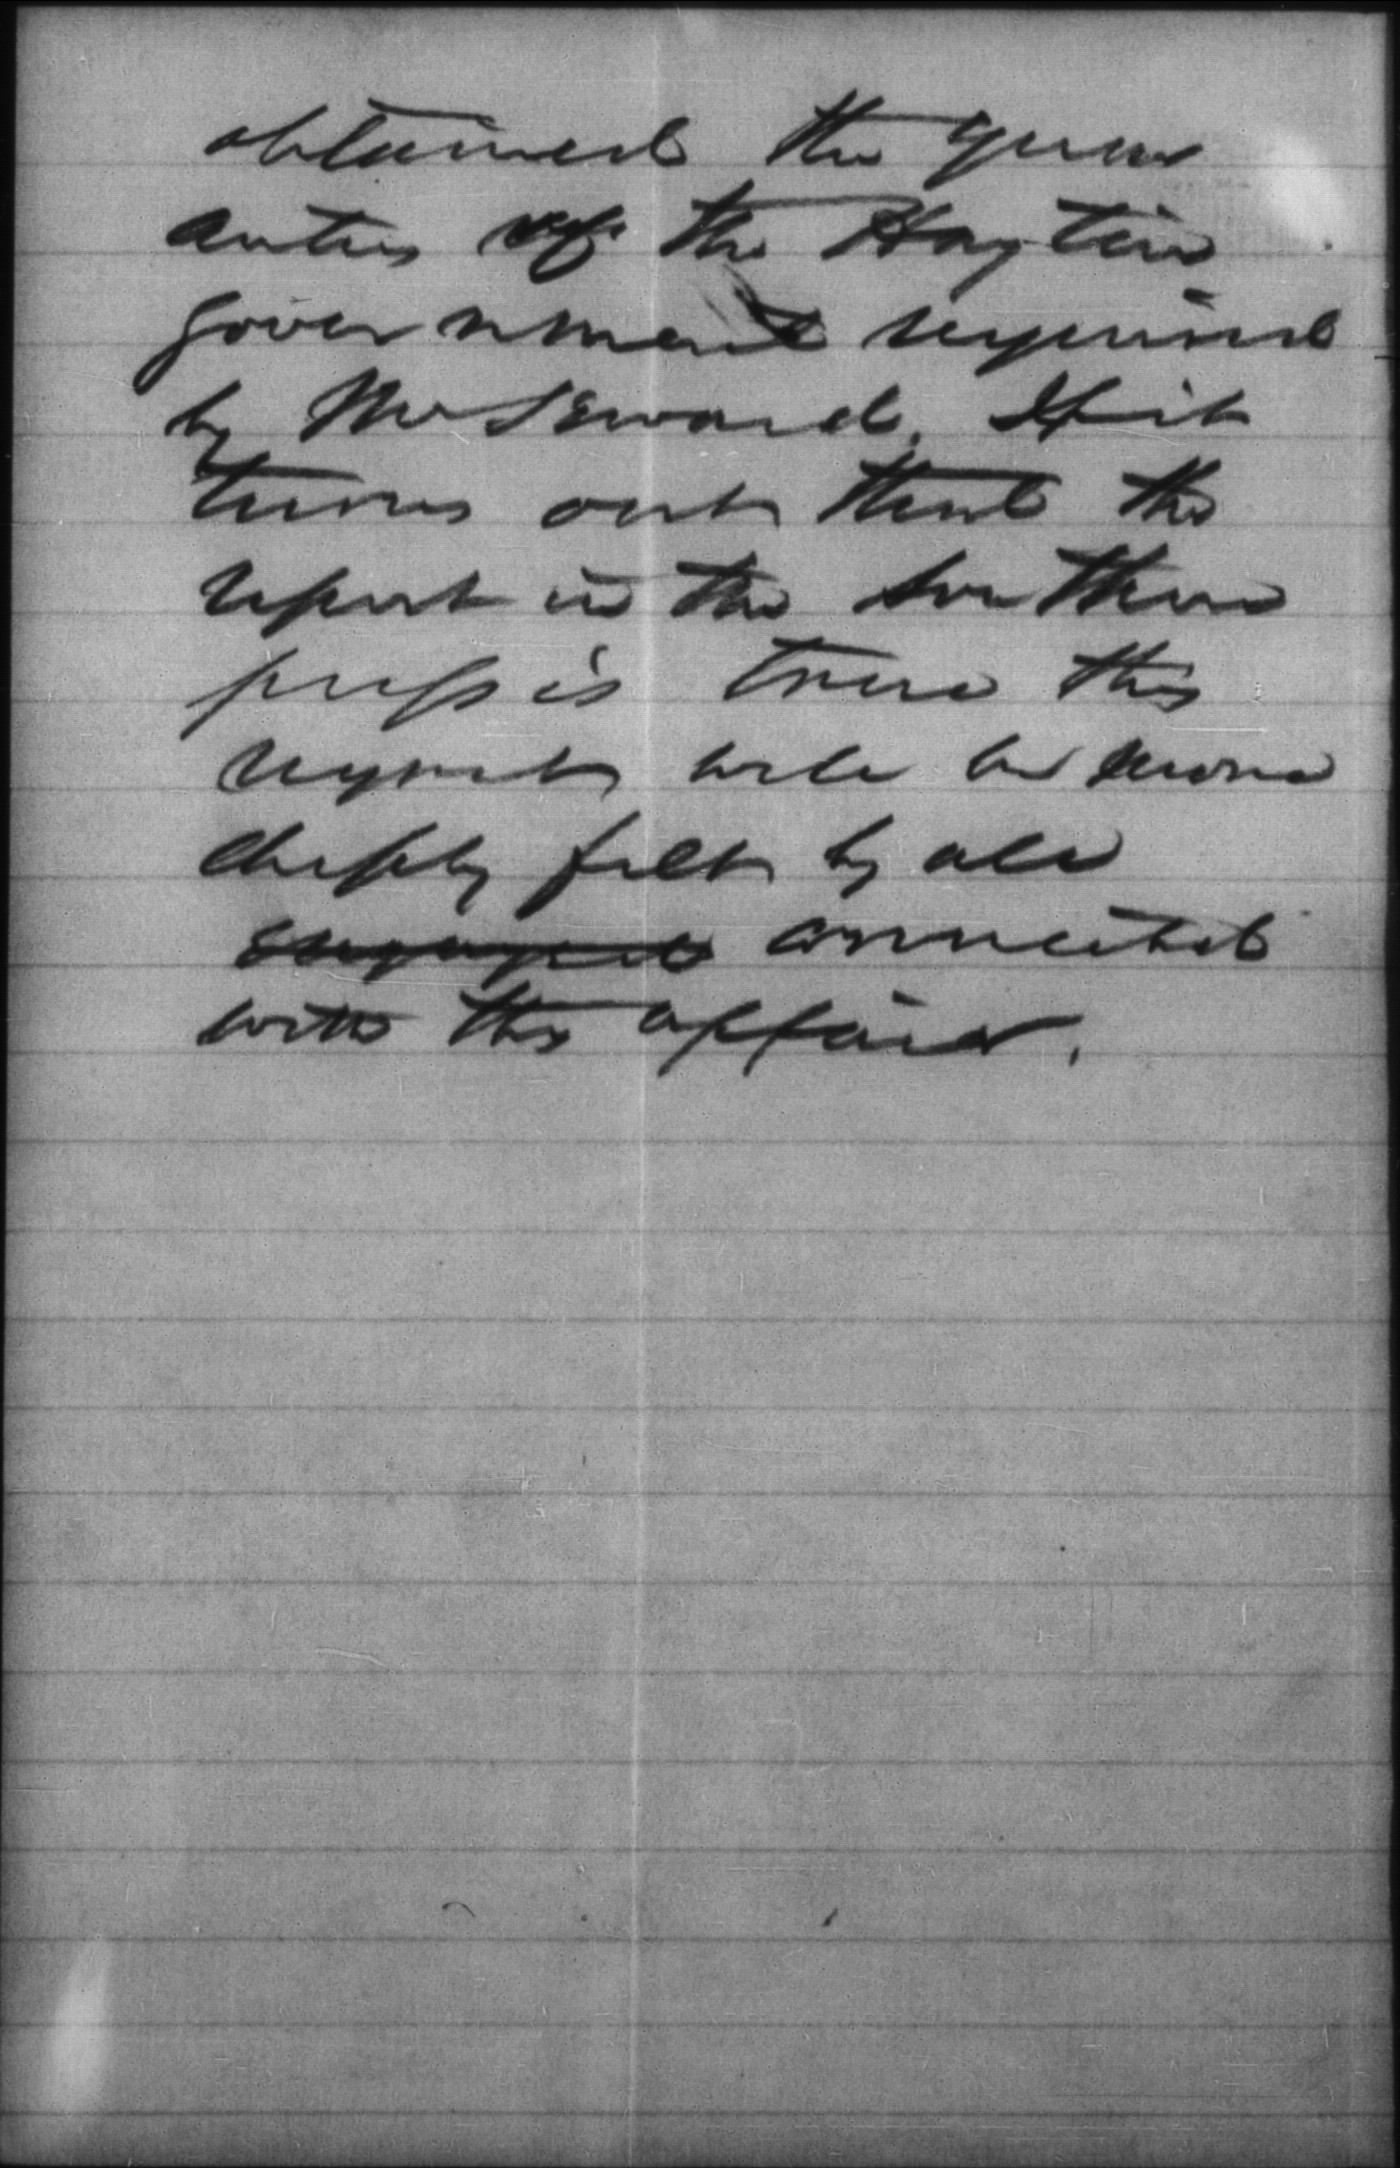 obtained the guar
anties of the Haytien
government required
by Mr Seward. If it
turns out that the
report in the Southern
press is true this
regret will be more
deeply felt by all
engaged connected
with the affair.